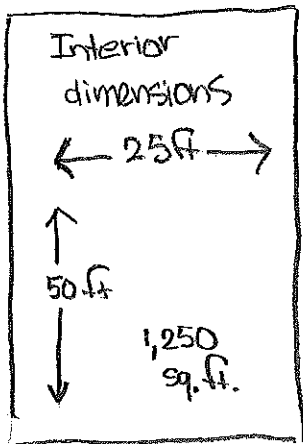 Interior
dimensions
25ft
50 ft
1,250
sq. ft.